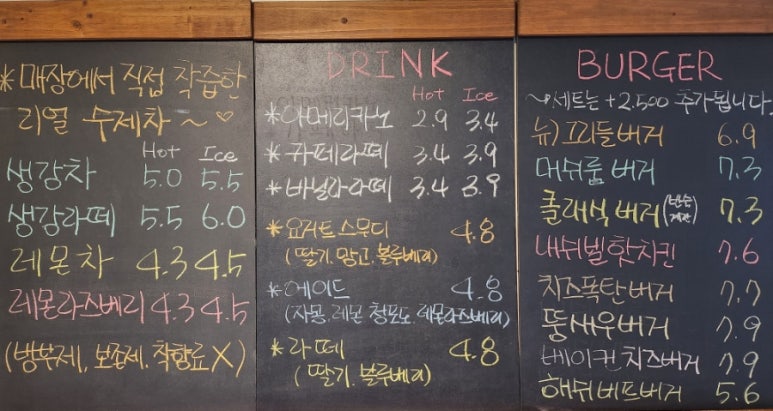 *매장에서 직접 착즙한
리얼 수제차 ~ ♡
Hot Ice
생강차 5.0 5.5
생강라떼 5.5 6.0
레몬차 4.3 4.5
레몬라즈베리 4.3 4.5
(방부제, 보존제, 착향료 X)
DRINK
Hot Ice
*아메리카노 2.9 3.4
*카페라떼 3.4 3.9
*바닐라라떼 3.4 3.9
*요거트스무디 4.8
(딸기. 망고. 블루베리)
*에이드 4.8
(자몽. 레몬. 청포도. 레몬라즈베리)
*라떼 4.8
(딸기. 블루베리)
BURGER
~세트는 +2.500 추가됩니다.
뉴)프리들버거 6.9
머쉬룸버거 7.3
클래식버거 7.3
내쉬빌핫치킨 7.6
치즈폭탄버거 7.7
뚱새우버거 7.9
베이컨치즈버거 7.9
해쉬버프버거 5.6